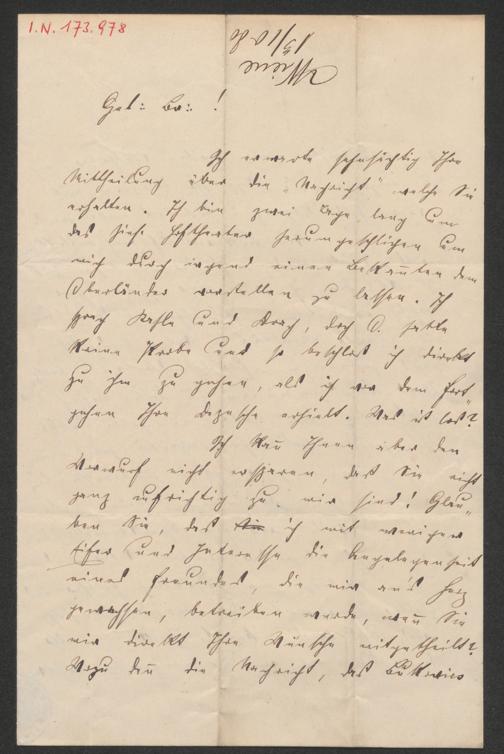 I.N. 173.978
Wien
13/10 80
Gel: Br: !
Ich erwarte sehnsüchtig Ihre
Mittheilung über die "Nachricht" welche Sie
erhalten. Ich bin zwei Tage lang um
das Hoftheater herumgeschlichen um
mich durch irgend einen Bekannten dem
Oberländer vorstellen zu lassen. Ich
sprach und , doch O. hatte
keine Probe und so beschloß ich direkt
zu ihm zu gehen, als ich vor dem Fort-
gehen Ihre Depesche erhielt. Was ist los?
Ich kann Ihnen aber den
Vorwurf nicht ersparen, daß Sie nicht
ganz aufrichtig zu mir sind! Glau-
ben Sie, daß ich mit weniger
Eifer und Interesse die Angelegenheit
eines Freundes, die mir an's Herz
gewachsen, betreiben werde, wenn Sie
mir direkt Ihre Wünsche mitgetheilt?
Wozu denn die Nachricht, daß Bukovics